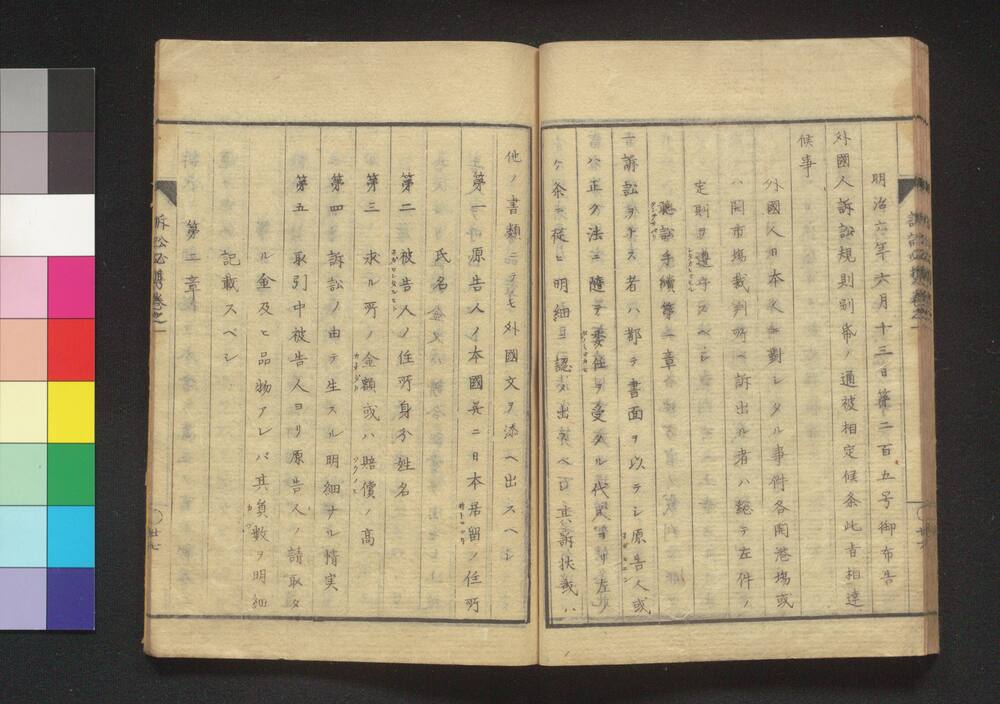 明治六年六月十三日第二百五号御布告
外國人訴訟規則別帋ノ通被相定候条此旨相達
候事
外國人日本人ニ對シタル事件各開港場或
ハ開市場裁判所ヘ訴出ル者ハ総テ左件ノ
定則ヲ遵守スベシ
聴訟手續第一章
訴訟ヲナス者ハ都テ書面ヲ以テシ原告人或
ハ正クノ法ニ随テ委任ヲ受タル代人ヨリ左ノ
ケ条ニ従ヒ明細ニ認メ出スベシ其訴状或ハ
他ノ書類ニテモ外國文ヲ添ヘ出スヘシ
第一 原告人ノ本國并ニ日本居留ノ住所
氏名
第二 被告人ノ住所身分姓名
第三 求ル所ノ金額或ハ賠償ノ高
第四 訴訟ノ由テ生スル明細ナル情実
第五 取引中被告人ヨリ原告人ノ請取タ
ル金及ヒ品物アレバ其員數ヲ明細
記載スベシ
第二章
訴訟必携巻之一
廿七